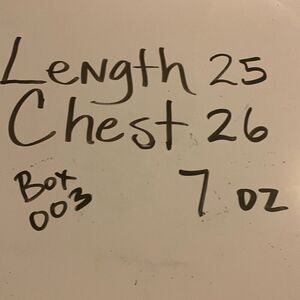 Length 25
Chest 26
Box 7 oz
003